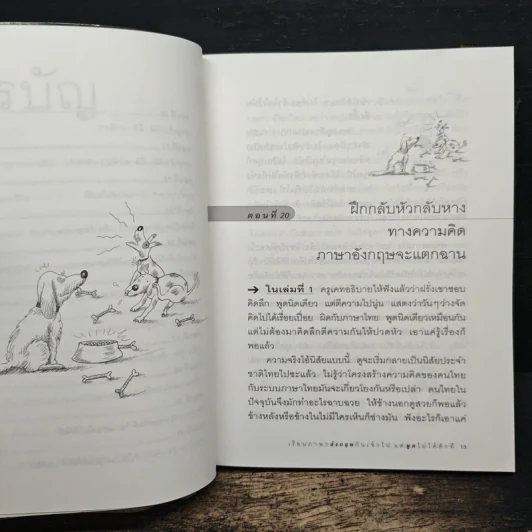 รบัญ
ตอนที่ 20
ฝึกกลับหัวกลับหาง
ทางความคิด
ภาษาอังกฤษจะแตกฉาน
➔ ในเล่มที่ 1 ครูเคทอธิบายให้ฟังแล้วว่าฝรั่งเขาชอบ
คิดลึก พูดนิดเดียว แต่ตีความไปนู่น แสดงว่าวันๆว่างจัด
คิดไปได้เรื่อยเปื่อย ผิดกับภาษาไทย พูดนิดเดียวเหมือนกัน
แต่ไม่ต้องมาคิดลึกตีความกันให้ปวดหัว เอาแค่รู้เรื่องก็
พอแล้ว
ความจริงใช้นิสัยแบบนี้ ดูจะเริ่มกลายเป็นนิสัยประจำ
ชาติไทยไปซะแล้ว ไม่รู้ว่าโครงสร้างความคิดของคนไทย
กับระบบภาษาไทยมันจะเกี่ยวโยงกันหรือเปล่า คนไทยใน
ปัจจุบันจึงมักทำอะไรฉาบฉวย ให้ข้างนอกดูสวยก็พอแล้ว
ข้างหลังหรือข้างในไม่มีใครเห็นก็ช่างมัน ฟังอะไรก็เอาแค่
เรียนภาษาอังกฤษกันเข้าไป แต่พูดไม่ได้สักที 13